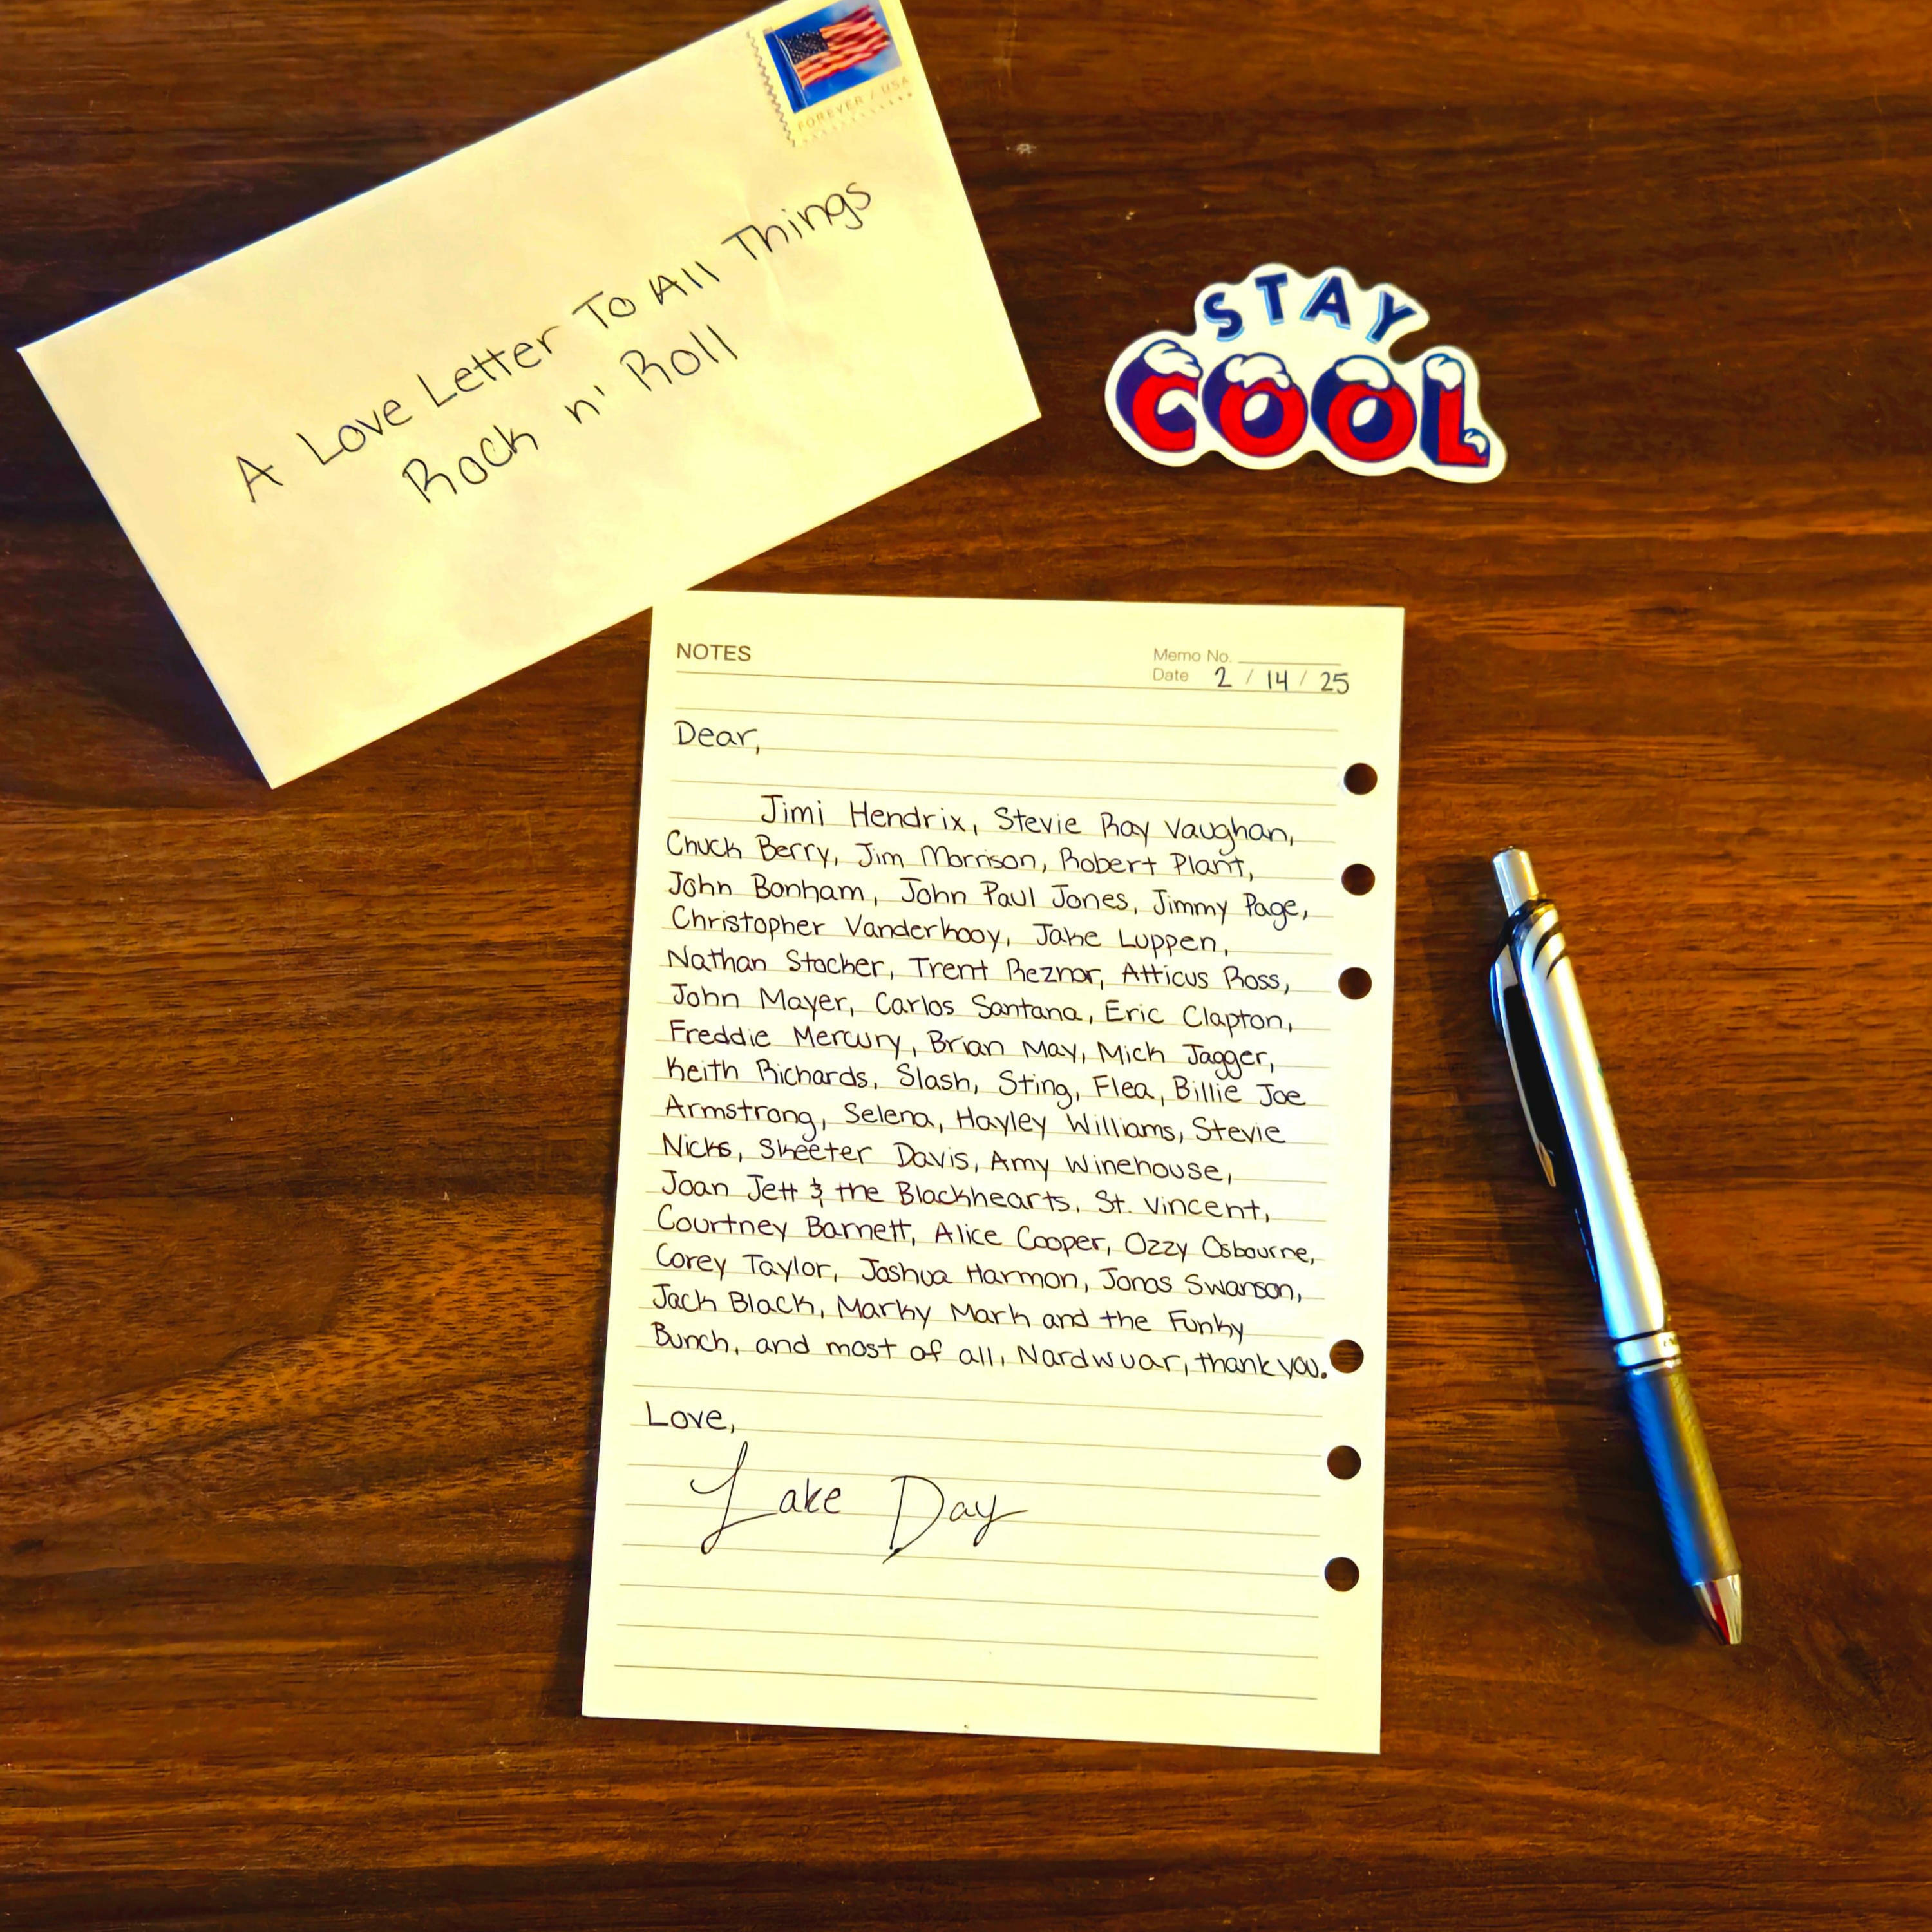 FOREVER / USA
A Love Letter To All Things
Rock n' Roll
STAY
COOL
NOTES
Memo No.
Date 2 / 14 / 25
Dear,
Jimi Hendrix, Stevie Ray Vaughan,
Chuck Berry, Jim Morrison, Robert Plant,
John Bonham, John Paul Jones, Jimmy Page,
Christopher Vanderkooy, Jake Luppen,
Nathan Stocker, Trent Reznor, Atticus Ross,
John Mayer, Carlos Santana, Eric Clapton,
Freddie Mercury, Brian May, Mick Jagger,
Keith Richards, Slash, Sting, Flea, Billie Joe
Armstrong, Selena, Hayley Williams, Stevie
Nicks, Skeeter Davis, Amy Winehouse,
Joan Jett & the Blackhearts, St. Vincent,
Courtney Barnett, Alice Cooper, Ozzy Osbourne,
Corey Taylor, Joshua Harmon, Jonas Swanson,
Jack Black, Marky Mark and the Funky
Bunch, and most of all, Nardwuar, thank you.
Love,
Lake Day